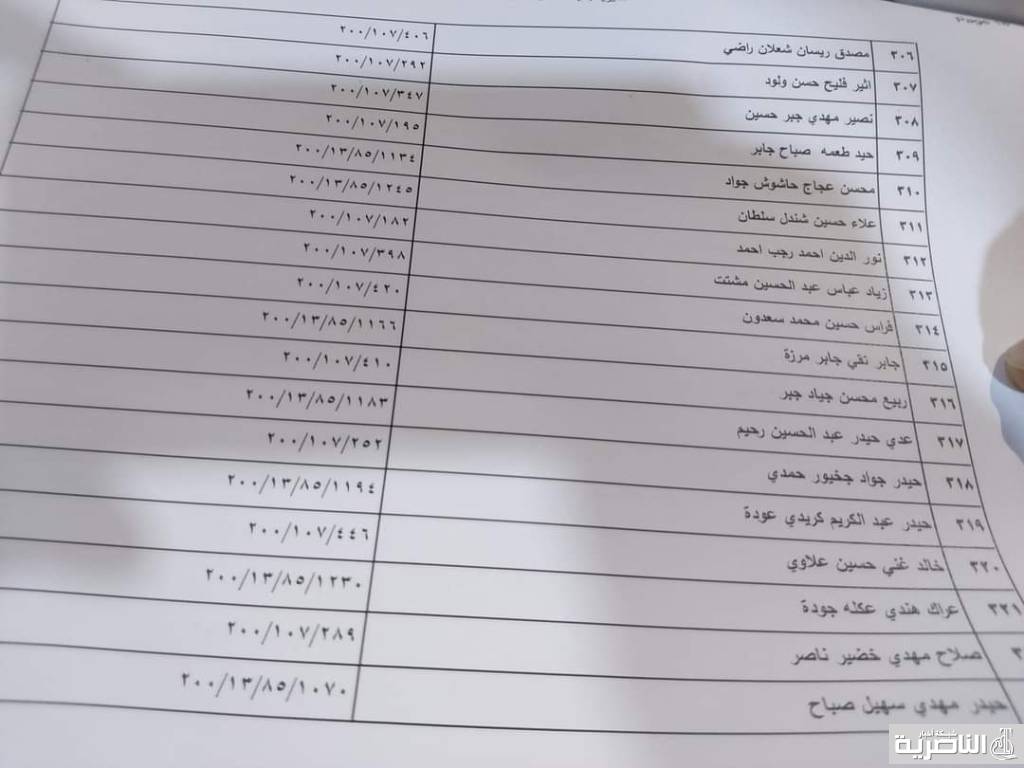 ٣٠٦ مصدق ريسان شعلان راضي ٢٠٠/١٠٧/٤٠٦
٣٠٧ اثير فليح حسن ولود ٢٠٠/١٠٧/٢٩٢
٣٠٨ نصير مهدي جبر حسين ٢٠٠/١٠٧/٣٤٧
٣٠٩ حيد طعمه صباح جابر ٢٠٠/١٠٧/١٩٥
٣١٠ محسن عجاج حاشوش جواد ٢٠٠/١٣/٨٥/١١٣٤
٣١١ علاء حسين شندل سلطان ٢٠٠/١٣/٨٥/١٢٤٥
٣١٢ نور الدين احمد رجب احمد ٢٠٠/١٠٧/١٨٢
٣١٣ زياد عباس عبد الحسين مشتت ٢٠٠/١٠٧/٣٩٨
٣١٤ فراس حسين محمد سعدون ٢٠٠/١٠٧/٤٢٠
٣١٥ جابر نقي جابر مرزة ٢٠٠/١٣/٨٥/١١٦٦
٣١٦ ربيع محسن جياد جبر ٢٠٠/١٠٧/٤١٠
٣١٧ عدي حيدر عبد الحسين رحيم ٢٠٠/١٣/٨٥/١١٨٣
٣١٨ حيدر جواد جخيور حمدي ٢٠٠/١٠٧/٢٥٢
٣١٩ حيدر عبد الكريم كريدي عودة ٢٠٠/١٣/٨٥/١١٩٤
٣٢٠ خالد غني حسين علاوي ٢٠٠/١٠٧/٤٤٦
٣٢١ عراك هندي عكله جودة ٢٠٠/١٣/٨٥/١٢٣٠
صلاح مهدي خضير ناصر ٢٠٠/١٠٧/٢٨٩
حيدر مهدي سهيل صباح ٢٠٠/١٣/٨٥/١٠٧٠
شبكة أخبار
الناصرية